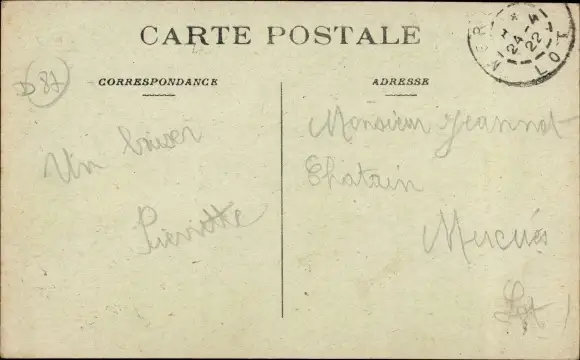 CARTE POSTALE
CORRESPONDANCE
ADRESSE
24-4
22
LOT
D 87
Un baiser
Pierrette
Monsieur Jeannot
Chatain
Mercuès
Lot